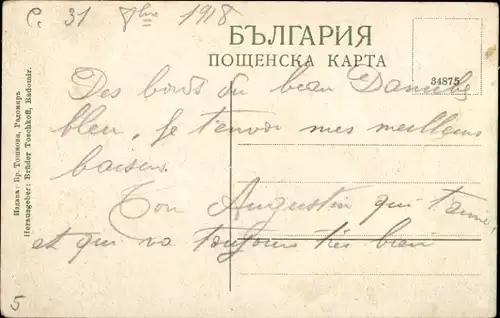 C. 31 8bre 1918
БЪЛГАРИЯ
ПОЩЕНСКА КАРТА
34875
Des bords du beau Danube
bleu, je t'envoi mes meilleurs
baisers.
Ton Augustin qui t'aime
et qui va toujours très bien
Издава: Бр. Тошкова, Радомиръ
Herausgeber: Brüder Toschkoff, Radomir.
5